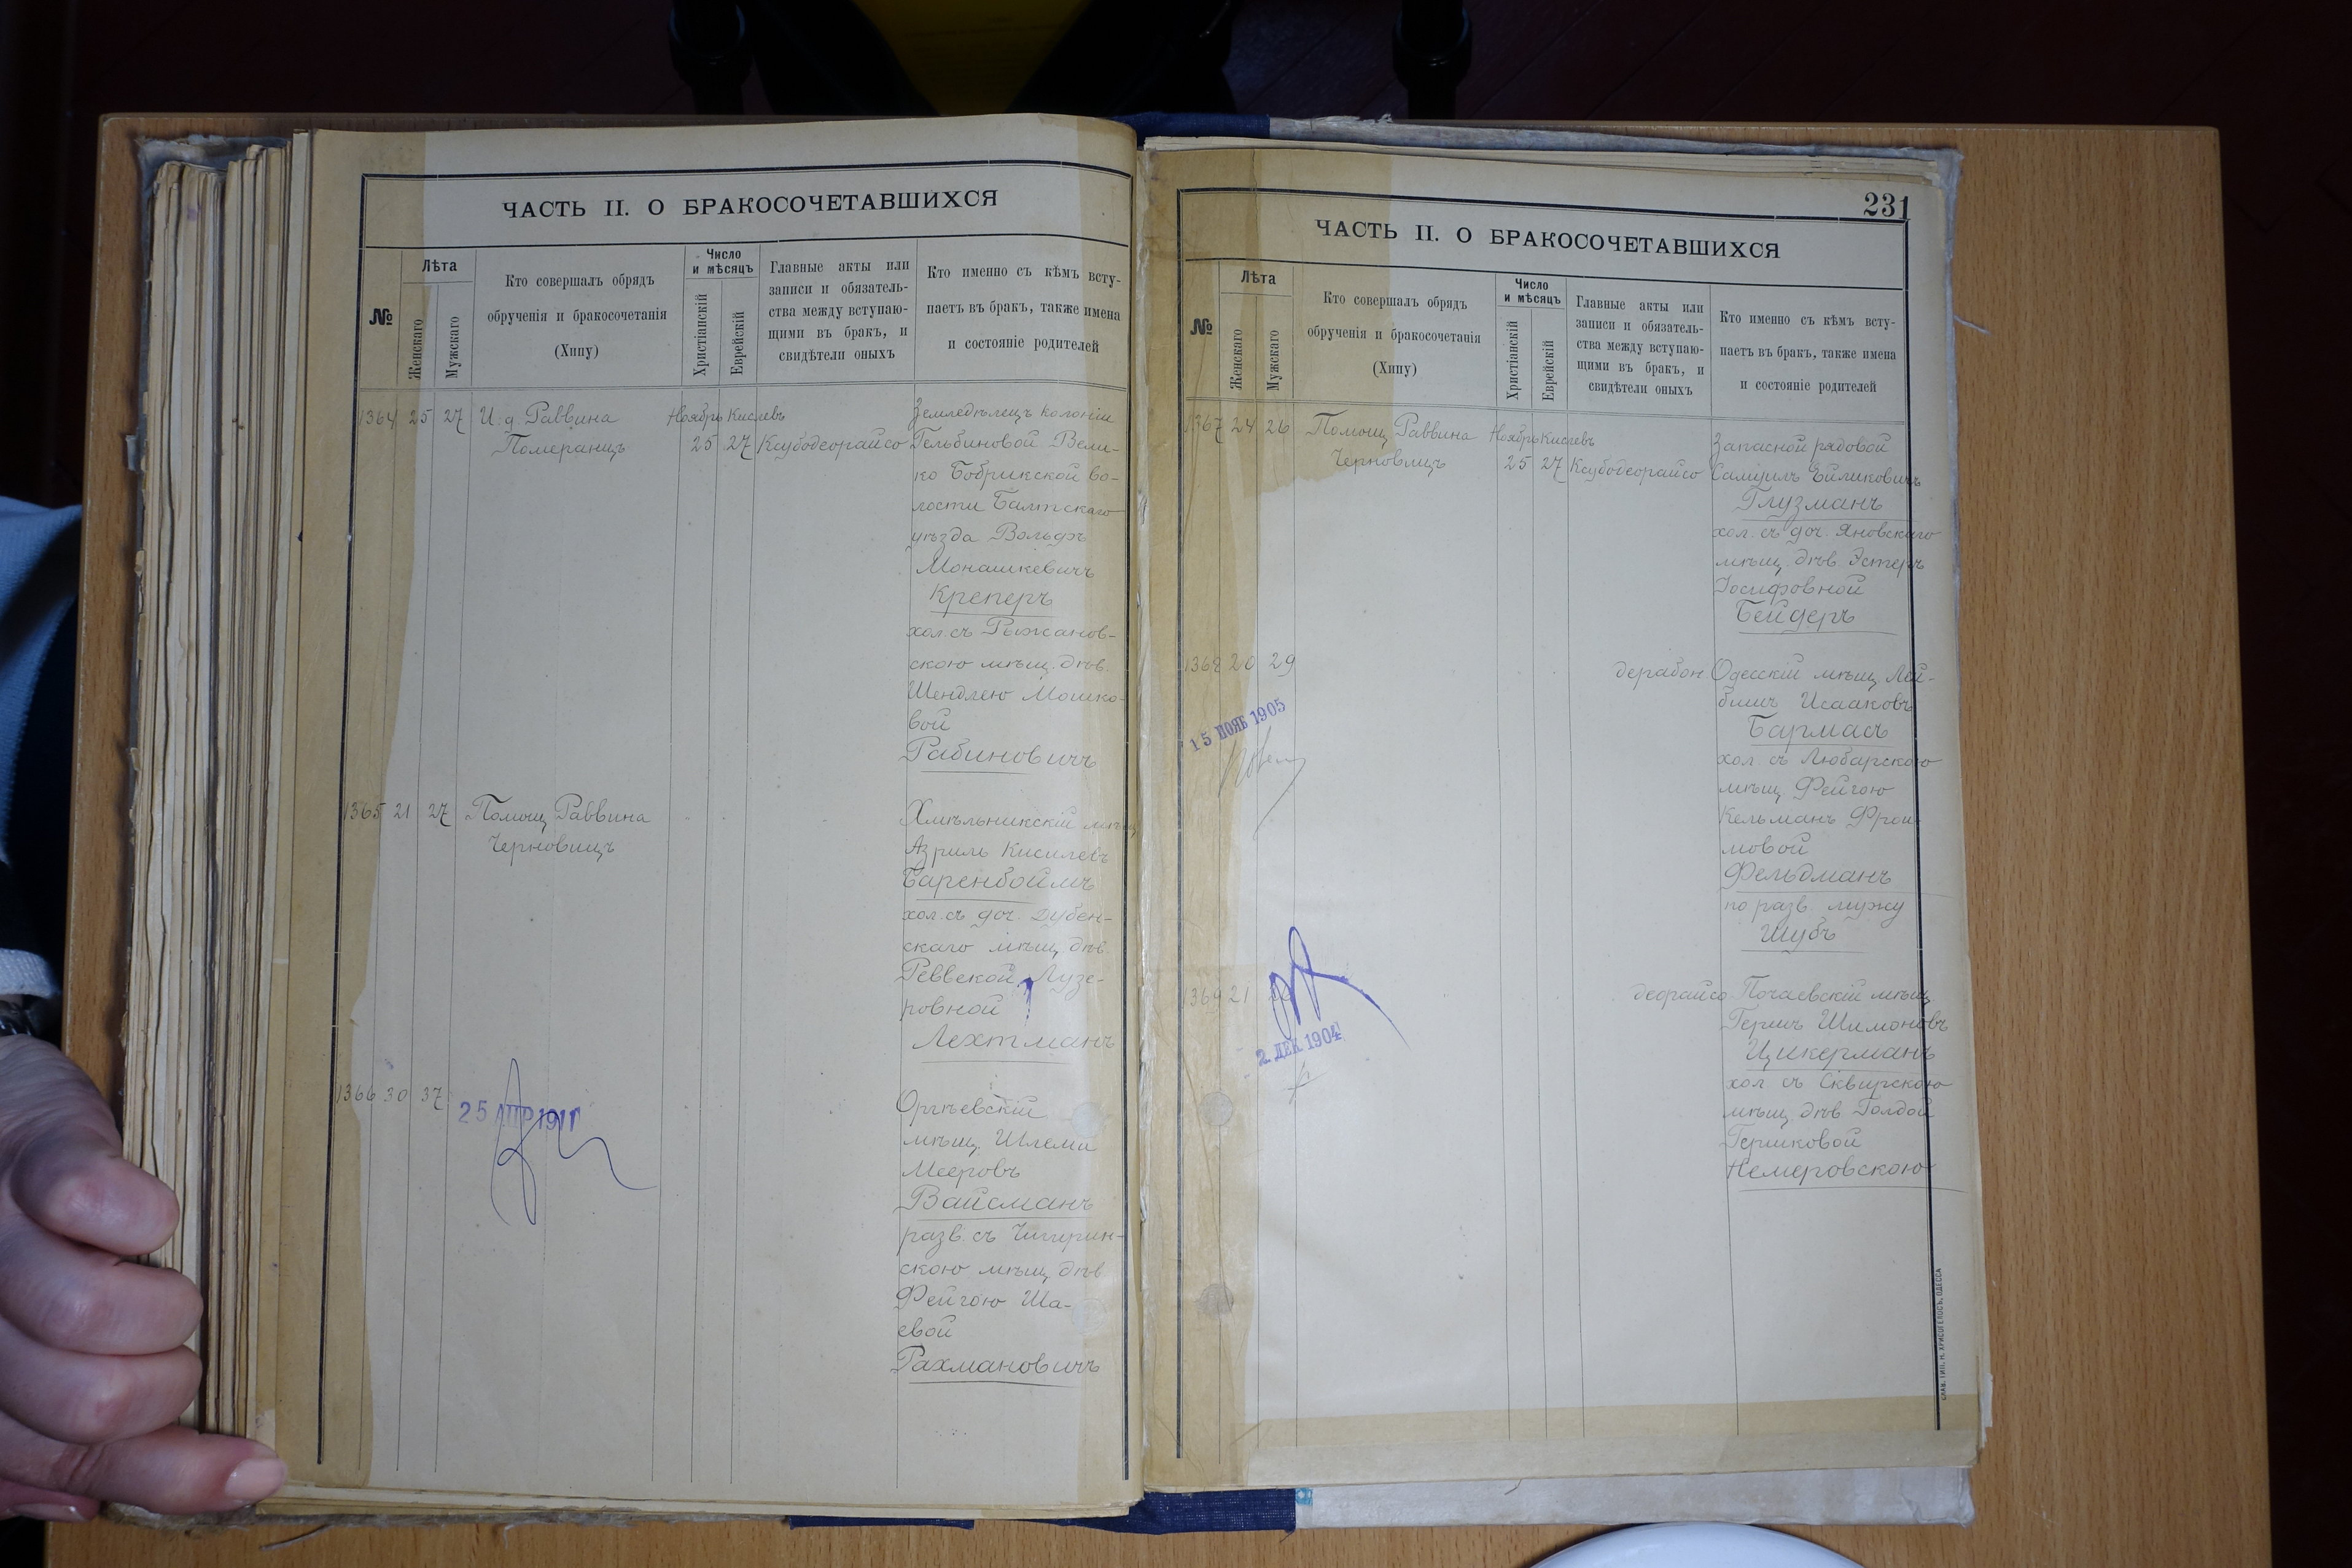 ЧАСТЬ II. О БРАКОСОЧЕТАВШИХСЯ
№
Лѣта
Женскаго
Мужскаго
Кто совершалъ обрядъ
обрученія и бракосочетанія
(Хипу)
Число
и мѣсяцъ
Христіанскій
Еврейскій
Главные акты или
записи и обязатель-
ства между вступаю-
щими въ бракъ, и
свидѣтели оныхъ
Кто именно съ кѣмъ всту-
паетъ въ бракъ, также имена
и состояніе родителей
1364 25 27 И. д. Раввина
Померанцъ
Ноябрь Кислевъ
25 27 Ксубодеорайсо
Земледѣлецъ колоніи
Гельбиновой Вели-
ко Бобрикской во-
лости Балтскаго
уѣзда Вольфъ
Монашкевичъ
Креперъ
хол. съ Рыжанов-
скою мѣщ. дѣв.
Шендлею Мошко-
вой
Рабиновичъ
1365 21 27 Помощ. Раввина
Черновицъ
Хмѣльникскій мѣщ
Азриль Кисилевъ
Баренбоймъ
хол. съ доч. Дубен-
скаго мѣщ. дѣв.
Реввекой Лузе-
ровной
Лехтманъ
1366 30 37
25 АПР 1911
Оргѣевскій
мѣщ. Шлема
Мееровъ
Вайсманъ
разв. съ Чигирин-
скою мѣщ. дѣв.
Фейгою Ша-
евой
Рахмановичъ
231
ЧАСТЬ II. О БРАКОСОЧЕТАВШИХСЯ
№
Лѣта
Женскаго
Мужскаго
Кто совершалъ обрядъ
обрученія и бракосочетанія
(Хипу)
Число
и мѣсяцъ
Христіанскій
Еврейскій
Главные акты или
записи и обязатель-
ства между вступаю-
щими въ бракъ, и
свидѣтели оныхъ
Кто именно съ кѣмъ всту-
паетъ въ бракъ, также имена
и состояніе родителей
1367 24 26 Помощ. Раввина
Черновицъ
Ноябрь Кислевъ
25 27 Ксубодеорайсо
Запасной рядовой
Самуилъ Ейликовичъ
Глузманъ
хол. съ доч. Яновскаго
мѣщ. дѣв. Эстеръ
Іосифовной
Бейдеръ
1368 20 29
дерабон.
15 НОЯБ 1905
Одесскій мѣщ. Лей-
бишъ Исааковъ
Бармасъ
хол. съ Любарскою
мѣщ. Фейгою
Кельманъ Фрои-
мовой
Фельдманъ
по разв. мужу
Шубъ
1369 21
2. ДЕК 1904
деорайсо
Почаевскій мѣщ.
Гершъ Шимоновъ
Цикерманъ
хол. съ Сквирскою
мѣщ. дѣв. Голдой
Гершковой
Немеровскою
СЛАВ. ТИП. Н. ХРИСОГЕЛОСЪ, ОДЕССА